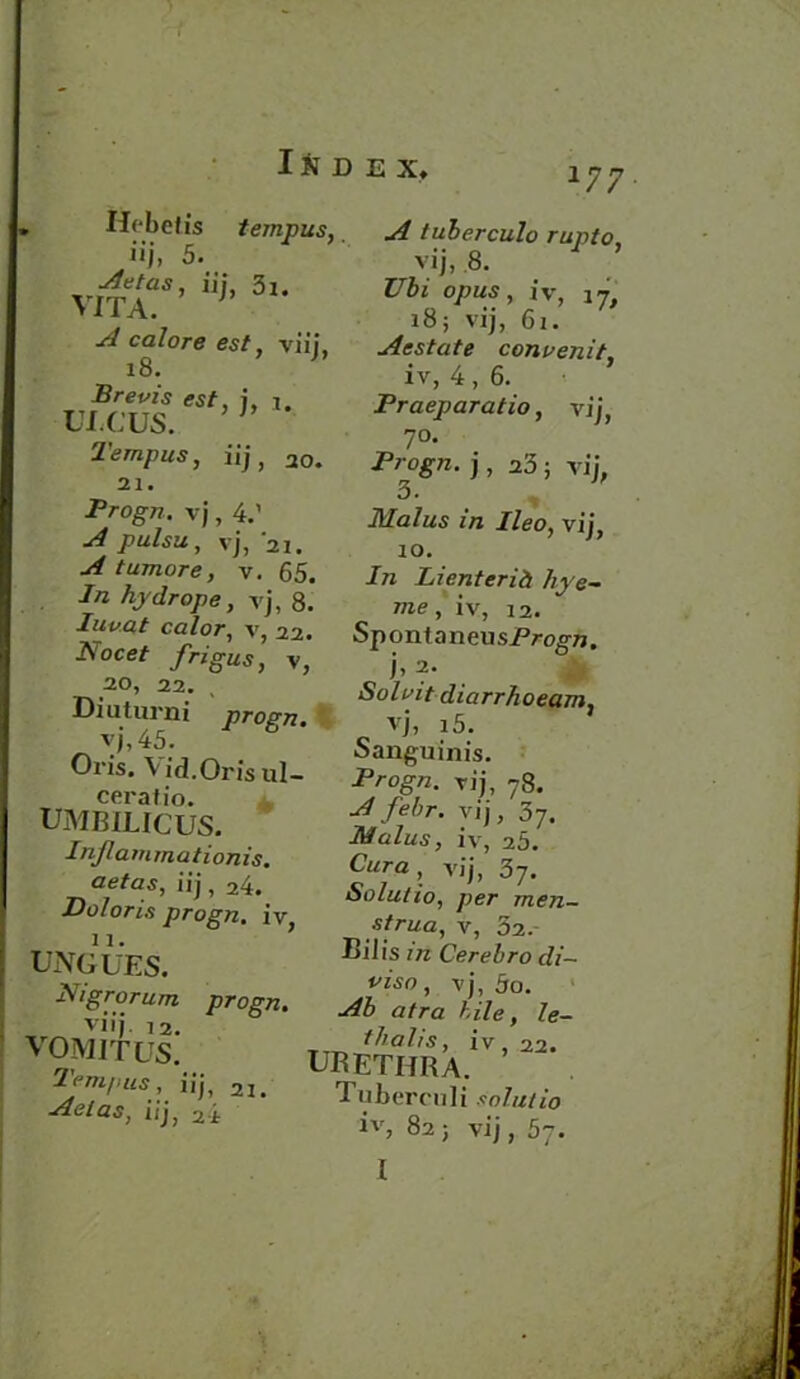 INDEX.
177
Hebetis tempus,
iij, 5.
Aetas, iij, 31.
VITA.
A calore est, viij,
18.
Brevis est, j, 1.
ULCUS.
Tempus, iij, 20.
21.
Progn. vj, 4.
A pulsu, vj, 21.
A tumore, v. 65.
In hydrope, vj, 8.
Iuvat calor, v, 22.
Nocet frigus, v,
20, 22.
Diuturni progn.
vj, 45.
Oris. Vid. Oris ul-
ceratio.
UMBILICUS.
Inflammationis.
aetas, iij, 24.
Doloris progn. iv,
11.
UNGUES.
Nigrorum progn.
viij. 12.
VOMITUS.
Tempus, iij, 21.
Aetas, iij, 24
A tuberculo rupto,
vij, 8.
Ubi opus, iv, 17,
18; vij, 61.
Aestate convenit,
iv, 4, 6.
Praeparatio, vij,
70.
Progn. j, 23; vij,
3.
Malus in Ileo, vij,
10.
In Lienteriâ hye-
me, iv, 12.
Spontaneus Progn.
j, 2.
Solvit diarrhoeam,
vj, 15.
Sanguinis.
Progn. vij, 78.
A febr. vij, 37.
Malus, iv, 25.
Cura, vij, 37.
Solutio, per men-
strua, v, 32.
Bilis in Cerebro di-
viso, vj, 50.
Ab atra bile, le-
thalis, iv, 22.
URETHRA.
Tuberculi solutio
iv, 82; vij, 57.
I